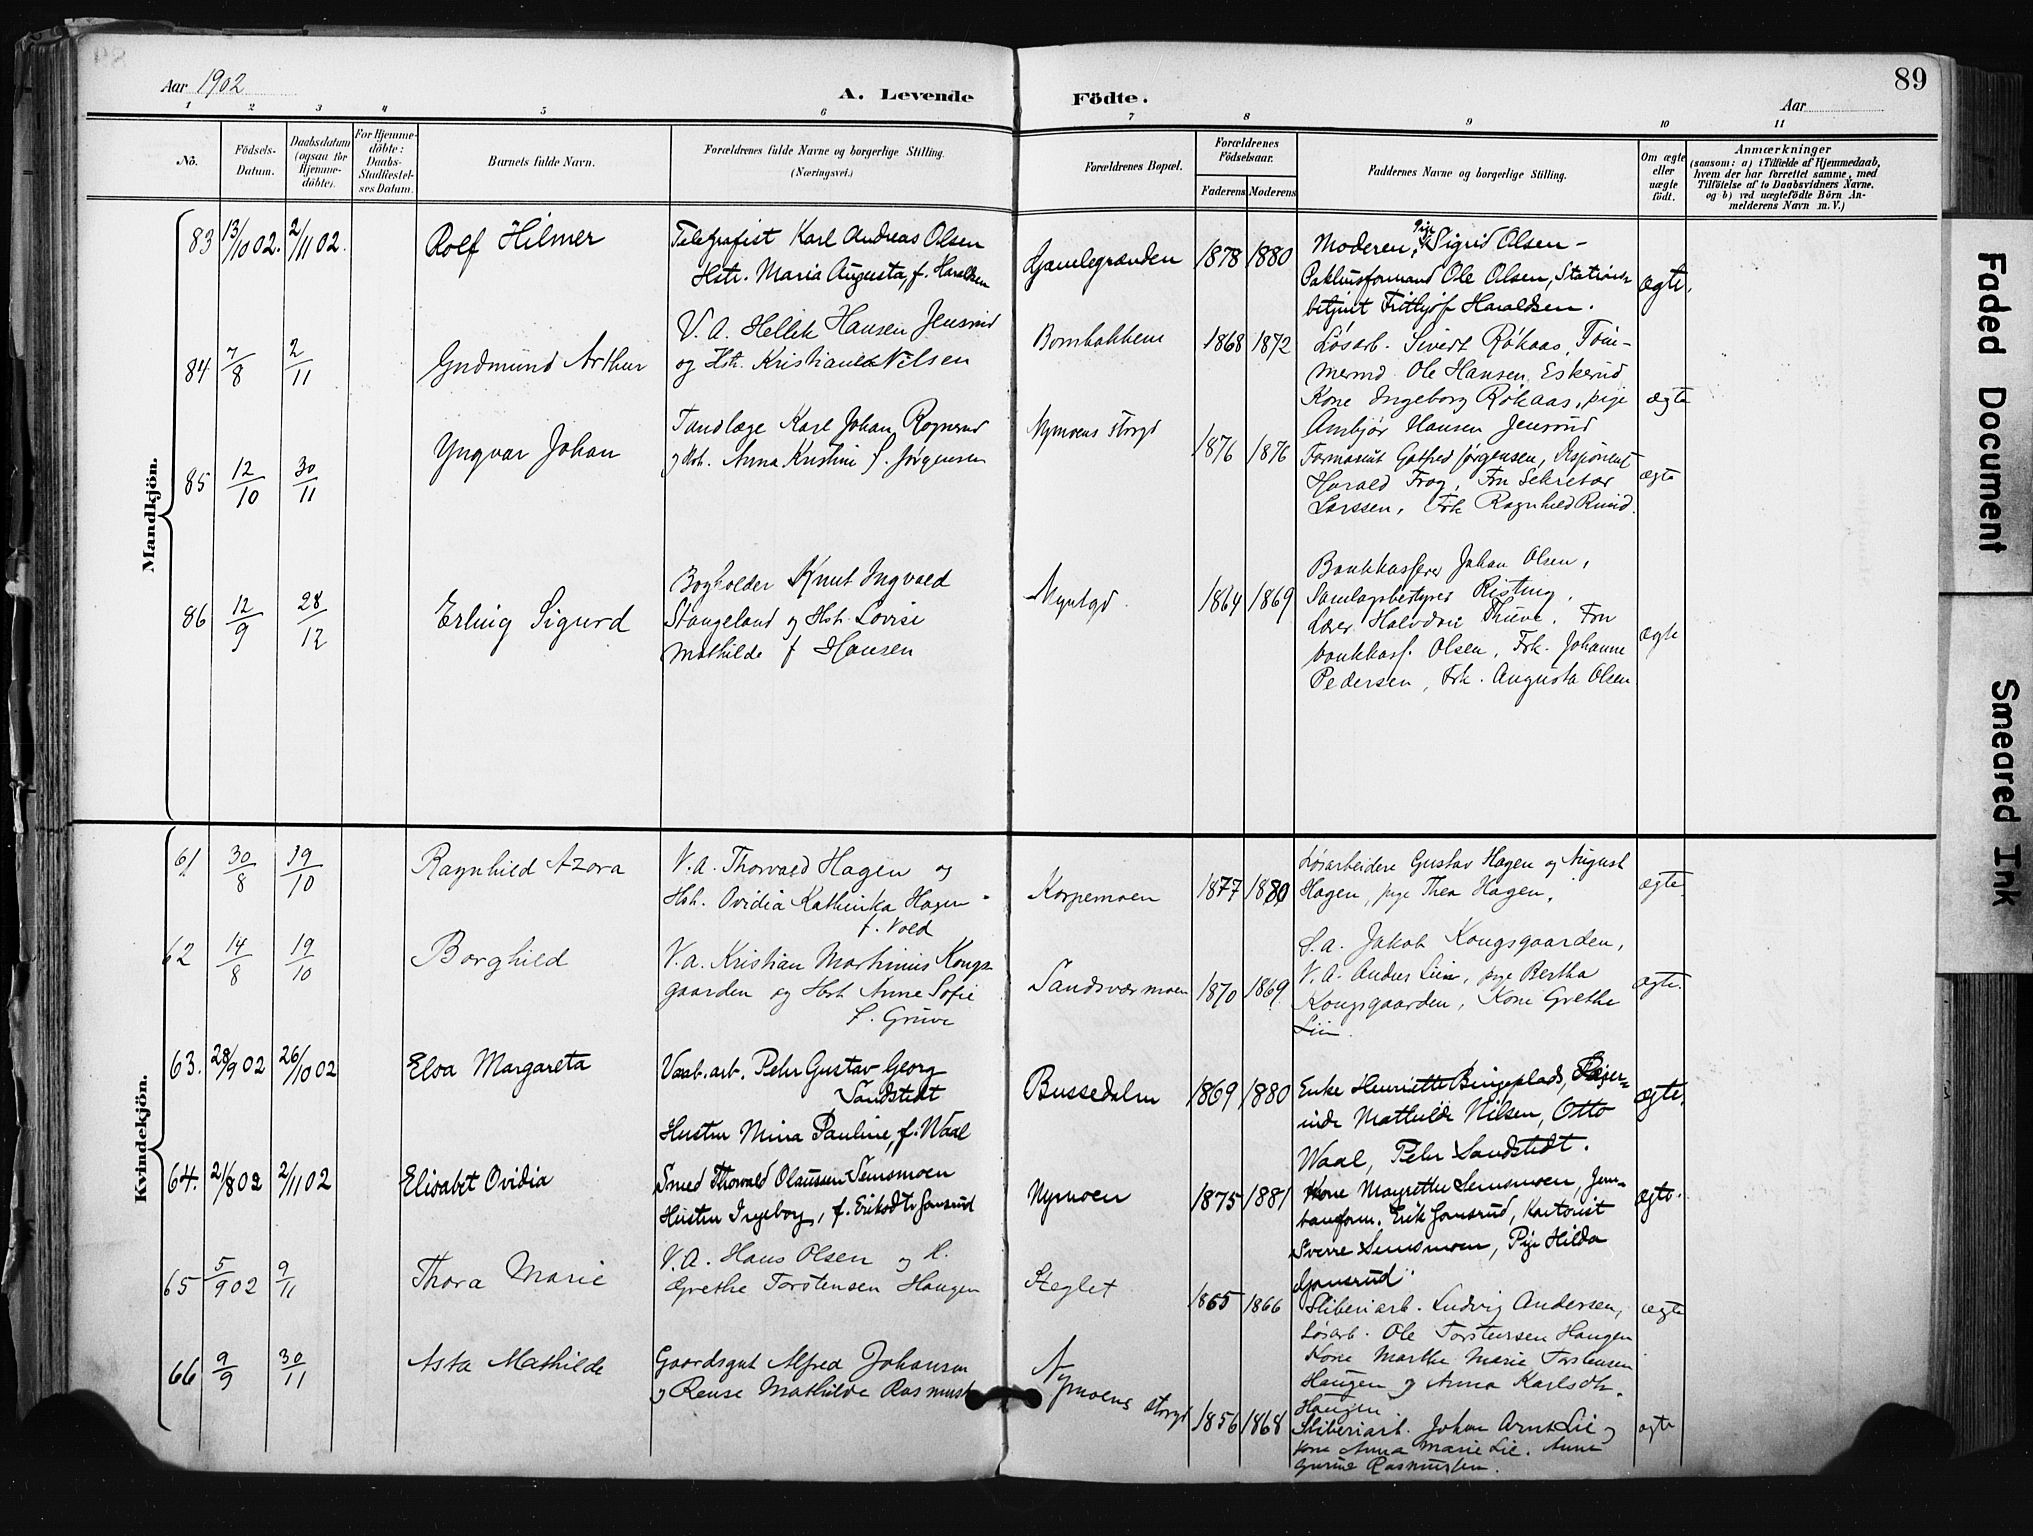 89
Aar 1902
A. Levende Födte.
Aar
1 2 3 4 5 6 7 8 9 10 11
No.
Födsels-Datum.
Daabsdatum (ogsaa for Hjemme-döbte).
For Hjemme-döbte: Daabs-Stadfæstel-ses Datum.
Barnets fulde Navn.
Forældrenes fulde Navne og borgerlige Stilling. (Næringsvei.)
Forældrenes Bopæl.
Forældrenes Födselsaar.
Faderens Moderens
Faddernes Navne og borgerlige Stilling.
Om ægte eller uægte födt.
Anmærkninger
(saasom: a) i Tilfælde af Hjemmedaab, hvem der har forrettet samme, med Tilföielse af to Daabsvidners Navne, og b) ved uægtefödte Börn An-melderens Navn m. V.)
Mandkjön.
83 13/10 02. 2/11 02. Rolf Hilmer
Telegrafist Karl Andreas Olsen
Hstr. Maria Augusta, f. Haraldsen
Gamlegrænden 1878 1880
Moderen, Pige Sigrid Olsen -
Pakhusformand Ole Olsen, Stations-
betjent Frithjof Haraldsen.
ægte.
84 7/8 2/11 Gudmund Arthur
V. A. Hellik Hansen Jensrud
og Hst. Kristiane Nilsen
Bombakken 1868 1872
Løsarb. Sivert Røkaas, Töm-
mermd. Ole Hansen Eskerud
Kone Ingeborg Røkaas, pige
Ambjør Hansen Jensrud
ægte
85 12/10 30/11 Yngvar Johan
Tandlæge Karl Johan Rognerud
og Hst. Anna Kristine f. Jørgensen
Nymoens Storgd 1876 1876
Farmaceut Gotfred Jørgensen, Disponent
Harald Frog, Fru Sekretær
Larssen, Frk Ragnhild Rund.
ægte
86 12/9 28/12 Erling Sigurd
Bogholder Knut Ingvald
Stangeland og Hst. Lovise
Mathilde f Hansen
Myntgd. 1864 1869
Bankkasserer Johan Olsen,
Samlagsbestyrer Risting,
Lærer Halvdan Thune, Fru
bankkass. Olsen, Frk. Johanne
Pedersen, Frk. Augusta Olsen
ægte
Kvindekjön.
61 30/8 19/10 Ragnhild Azora
V. a. Thorvald Hagen og
Hst. Ovidia Kathinka Hagen
f. Vold
Korpemoen 1877 1880
Løsarbeidere Gustav Hagen og August
Hagen, pige Thea Hagen.
ægte.
62 14/8 19/10 Borghild
V. a. Kristian Martinius Kongs-
gaarden og Hst Anne Sofie
f. Gruve
Sandsværmoen 1870 1869
S. a. Jakob Kongsgaarden,
V. A. Anders Lien, pige Bertha
Kongsgaarden, Kone Grethe
Lien.
ægte.
63. 28/9 02 26/10 02 Elsa Margareta
Vaab. arb. Pehr Gustav Georg
Sandstedt
Hustru Mina Pauline, f. Waal
Bussedalen 1869 1880
Enke Henriette Bingeplads,
Mathilde Nilsen, Otto
Waal, Pehr Sandstedt.
ægte.
64. 21/8 02 2/11 02 Elisabet Ovidia
Smed Thorvald Olaussen Semsmoen
Hustru Ingeborg, f. Eriksdtr Gomsrud
Nymoen 1875 1881
Kone Magrethe Semsmoen, Jern-
baneform. Erik Gomsrud, Kartonist
Sverre Semsmoen, Pige Hilda
Gomsrud.
ægte.
65 5/9 02 9/11 Thora Marie
V. A. Hans Olsen og H.
Grethe Torstensen Haugen
Steglet 1865 1866
Sliberiarb. Ludvig Andersen,
Løsarb. Ole Torstensen Haugen
Kone Marthe Marie Torstensen
Haugen og Anna Karlsdtr.
Haugen
ægte
66 9/9 30/11 Asta Mathilde
Gaardsgut Alfred Johansen
og Rense Mathilde Rasmussen
Nymoens storgd 1856 1868
Sliberiarb. Johan Arnt Lie og
kone Anna Marie Lie. Anne
Gurine Rasmussen.
ægte
Faded Document
Smeared Ink